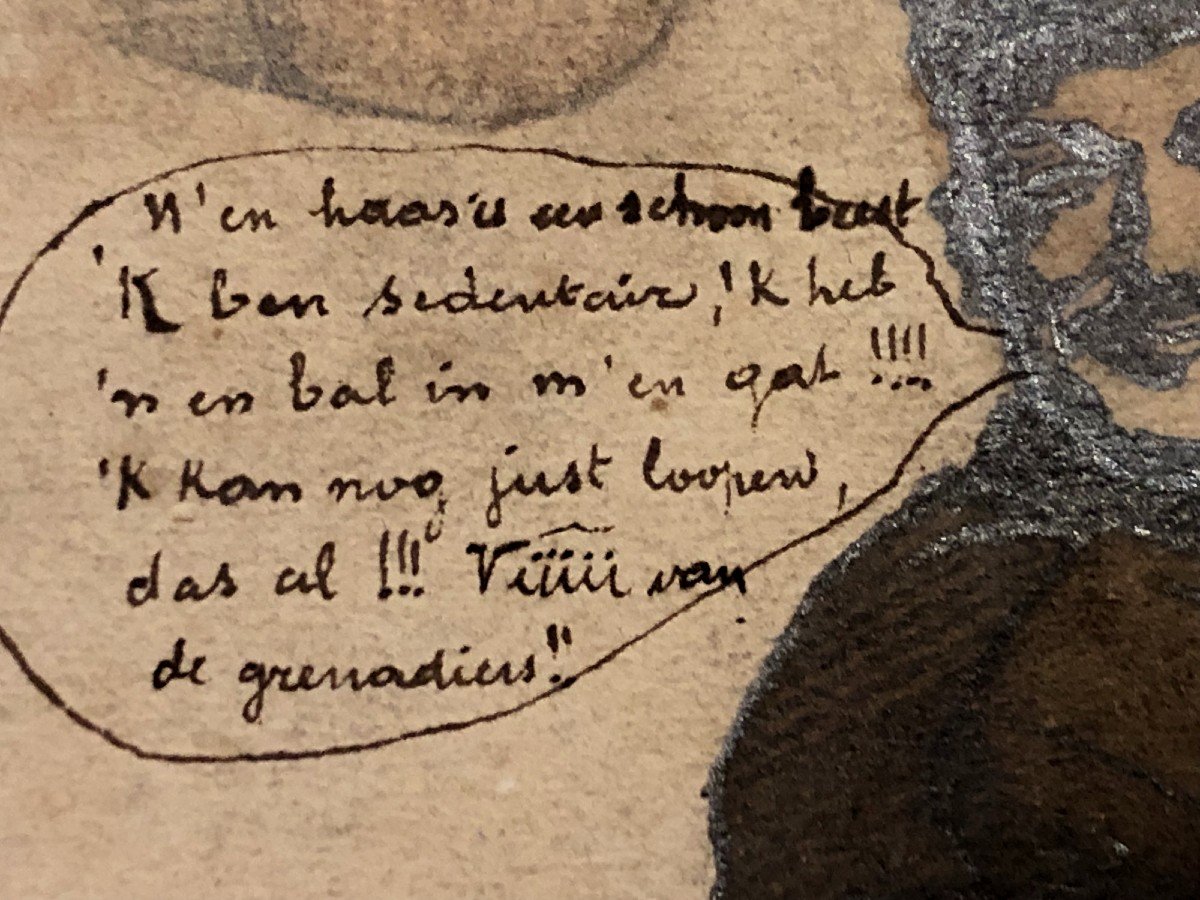 N'en haas'is een schoon beest
'K ben sedentair, 'K heb
'n en bal in m'en gat !!!!
'K Kan nog just loopen,
das al !!! Viiiii van
de grenadiers!!